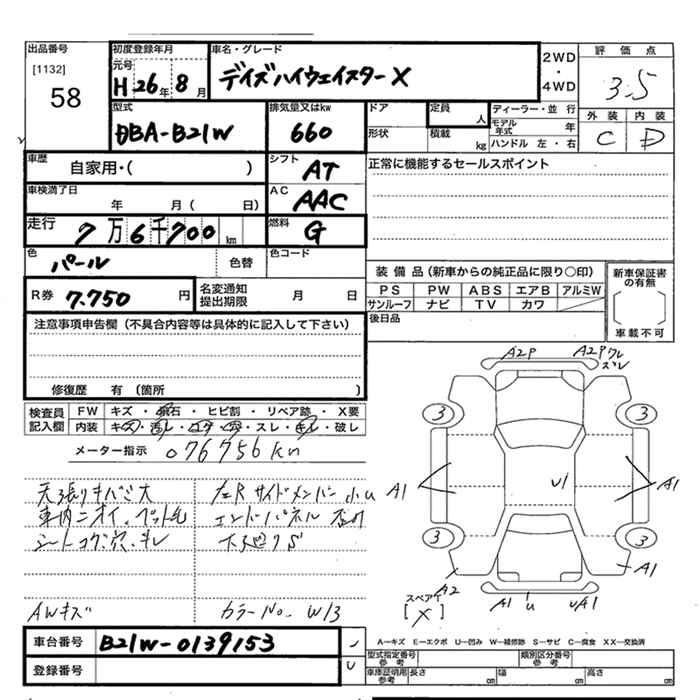 出品番号
[1132]
58
初度登録年月
元号
H 26年 8月
車名・グレード
デイズハイウェイスターX
2WD
・
4WD
評価点
3.5
外装 内装
C D
型式
DBA-B21W
排気量又はkw
660
ドア
形状
定員
人
積載
kg
ディーラー・並行
モデル年式 年
ハンドル 左・右
車歴
自家用・( )
シフト
AT
正常に機能するセールスポイント
車検満了日
年 月( 日)
AC
AAC
走行
7万6千700km
燃料
G
色
パール
色替
色コード
R券
7.750円
名変通知
提出期限
月 日
装備品(新車からの純正品に限り○印)
PS PW ABS エアB アルミW
サンルーフ ナビ TV カワ
後日品
新車保証書
の有無
車載不可
注意事項申告欄(不具合内容等は具体的に記入して下さい)
修復歴 有(箇所 )
検査員
記入欄
FW キズ・飛石・ヒビ割・リペア跡・X要
内装 キズ・汚レ・コゲ・穴・スレ・キレ・破レ
メーター指示 076756km
天張りキバミ大
車内ニオイ、ペット毛
シートコゲ、穴、キレ
AWキズ
左R サイドメンバー 小U
エンドパネル
下廻りS
カラーNo. W13
A2P A2P ワレ
ズレ
3 3
A1 U1 A1
3 3
A2 A1
スペアT
[X]
A1 U UA1
車台番号 B21W-0139153
登録番号
A―キズ E―エクボ U―凹み W―補修跡 S―サビ C―腐食 XX―交換済
型式指定番号
参考
類別区分番号
参考
車庫証明用
参考
長さ cm 幅 cm 高さ cm